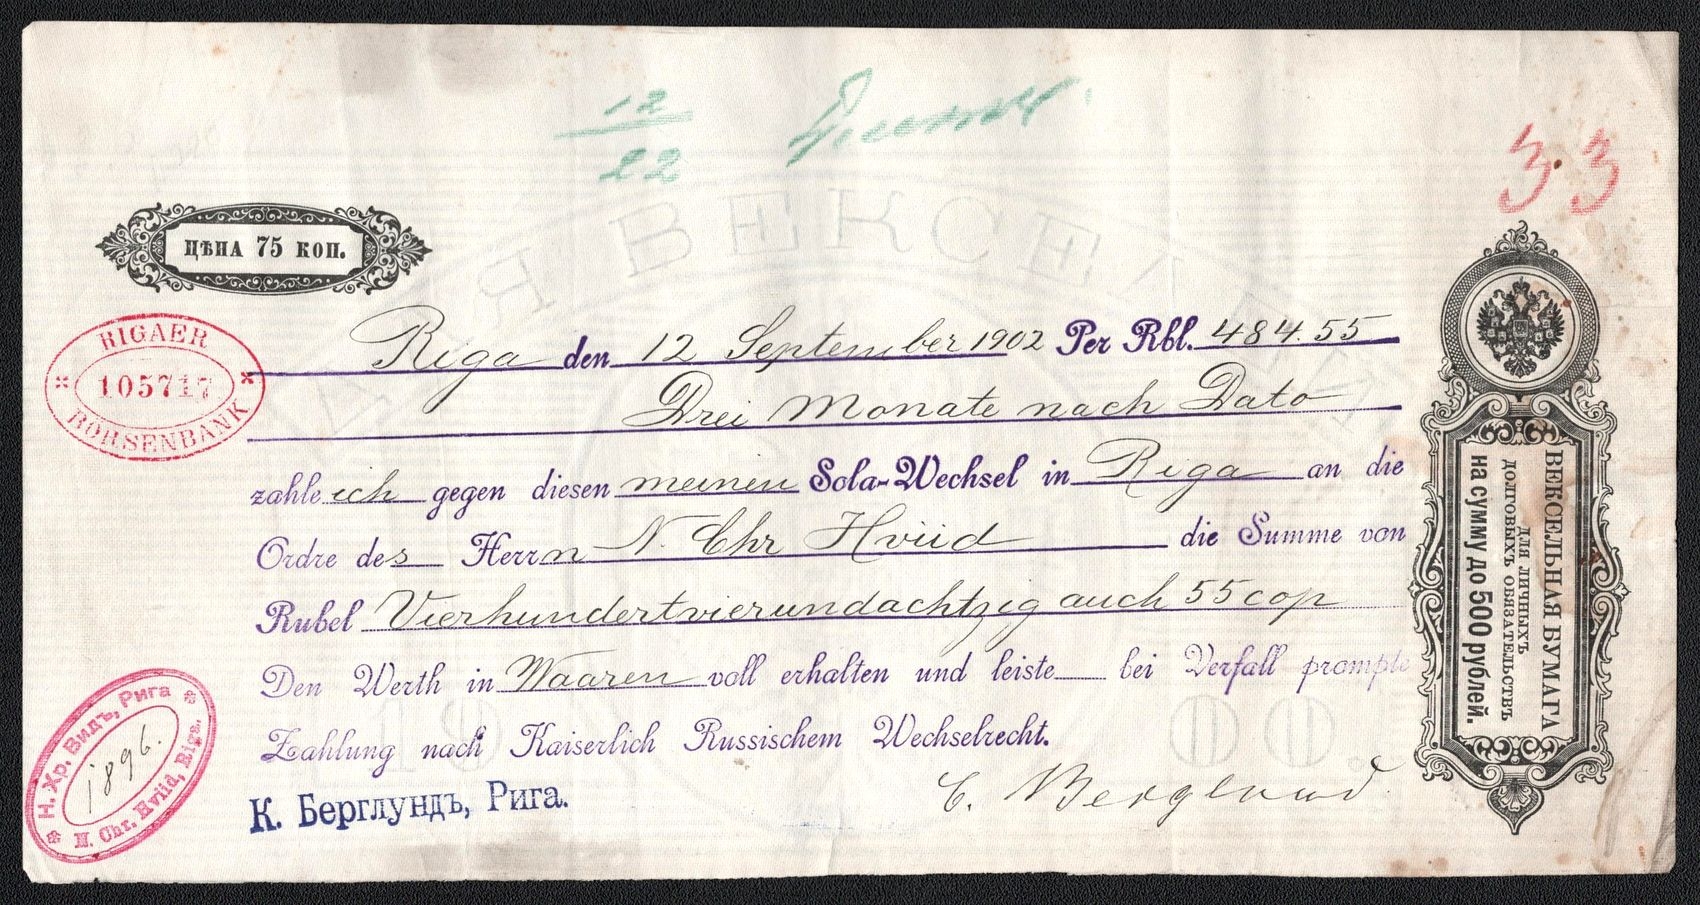 12
22
3.3
ЦѢНА 75 КОП.
RIGAER
105717
BÖRSENBANK
Riga den 12 September 1902 Per Rbl. 484.55
Drei Monate nach Dato
zahle ich gegen diesen meinen Sola-Wechsel in Riga an die
Ordre des Herrn N. Chr Hviid die Summe von
Rubel Vierhundertvierundachtzig auch 55 cop
Den Werth in Waaren voll erhalten und leiste bei Verfall prompte
Zahlung nach Kaiserlich Russischem Wechselrecht.
C. Berglund
К. Берглундъ, Рига.
Н. Хр. Видъ, Рига
1896.
N. Chr. Hviid, Riga.
ВЕКСЕЛЬНАЯ БУМАГА
ДЛЯ ЛИЧНЫХЪ
ДОЛГОВЫХЪ ОБЯЗАТЕЛЬСТВЪ
на сумму до 500 рублей.